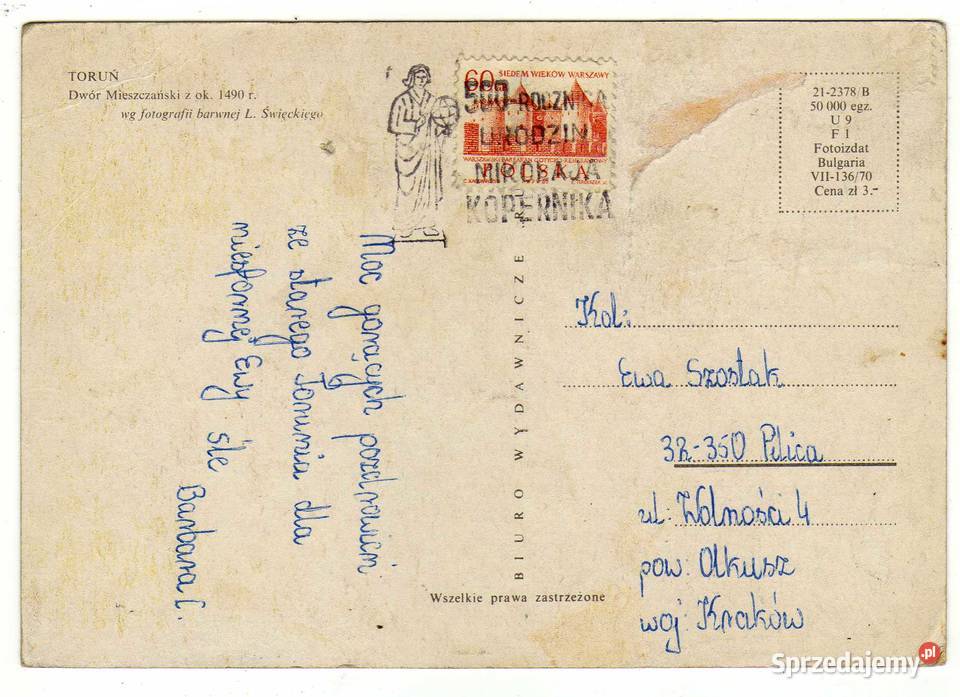 TORUŃ
Dwór Mieszczański z ok. 1490 r.
wg fotografii barwnej L. Święckiego
60 SIEDEM WIEKÓW WARSZAWY
POLSKA
500-ROCZNICA
URODZIN
MIKOŁAJA
KOPERNIKA
21-2378/B
50 000 egz.
U 9
F 1
Fotoizdat
Bulgaria
VII-136/70
Cena zł 3.-
Moc gorących pozdrowień
ze starego Torunia dla
niesfornej Ewy śle
Barbara C.
BIURO WYDAWNICZE
Wszelkie prawa zastrzeżone
Kol:
Ewa Szostak
32-350 Pilica
ul: Wolności 4
pow: Olkusz
woj: Kraków
Sprzedajemy.pl